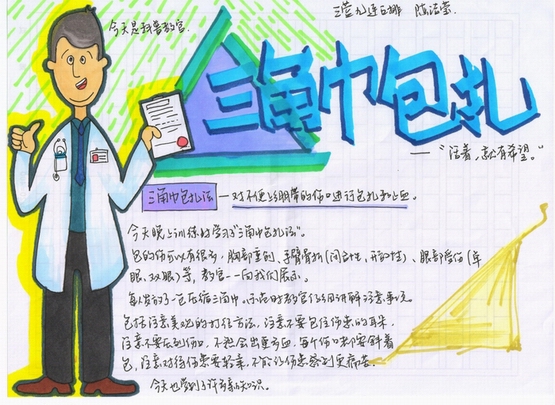 三营九连五排 陈洁莹
今天是我当教官
三角巾包扎
——“活着，就有希望。”
三角巾包扎法——对不便上绷带的伤口进行包扎和止血。
今天晚上训练的学习了“三角巾包扎法”。
包的伤可以有很多，胸部重创、手臂骨折(闭合性、开放性)、眼部受伤(单
眼、双眼)等，教官一一向我们展示。
每人发了一包压缩三角巾，示范时教官仔细讲解注意事项。
包括注意美观的打结方法，注意不要包住伤患的耳朵，
注意不要压到伤口，不然会出更多血，每个伤口都要斜着
包，注意对待伤患要轻柔，不能让伤患感到更痛苦。
今天也学到了许多新知识。